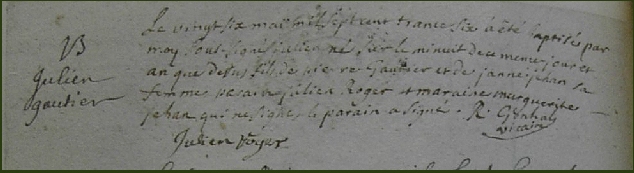 B
Julien
gautier
Le vingt six mai mil sept cent trance six a été baptisé par
moy sout signé iulien né sur le minuit de ce meme jour et
an que desus fils de pierre Gautier et de janne jehan sa
femme parain julien Roger et maraine marguerite
jehan qui ne signe le parain a signé. R.
vicaire
Julien Roger